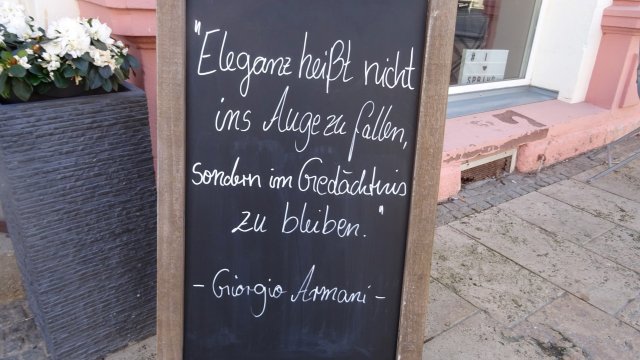 "Eleganz heißt nicht
ins Auge zu fallen,
sondern im Gedächtnis
zu bleiben."
- Giorgio Armani -
# I
♥
SPRING